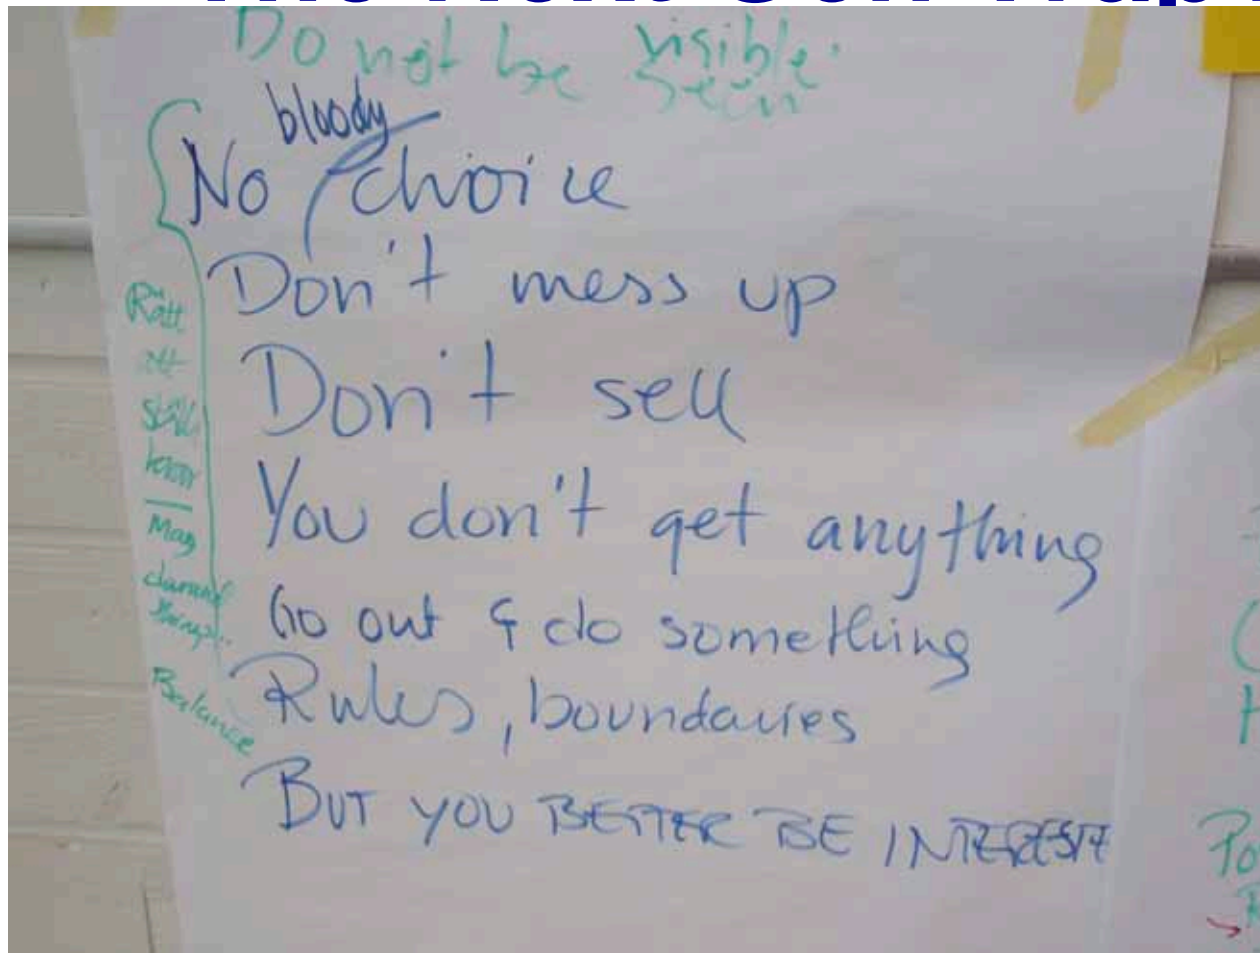 Do not be visible.
seen
bloody
No choice
Don't mess up
Don't sell
You don't get anything
Go out & do something
Rules, boundaries
BUT YOU BETTER BE INTERESTE
Rätt
att
Balance